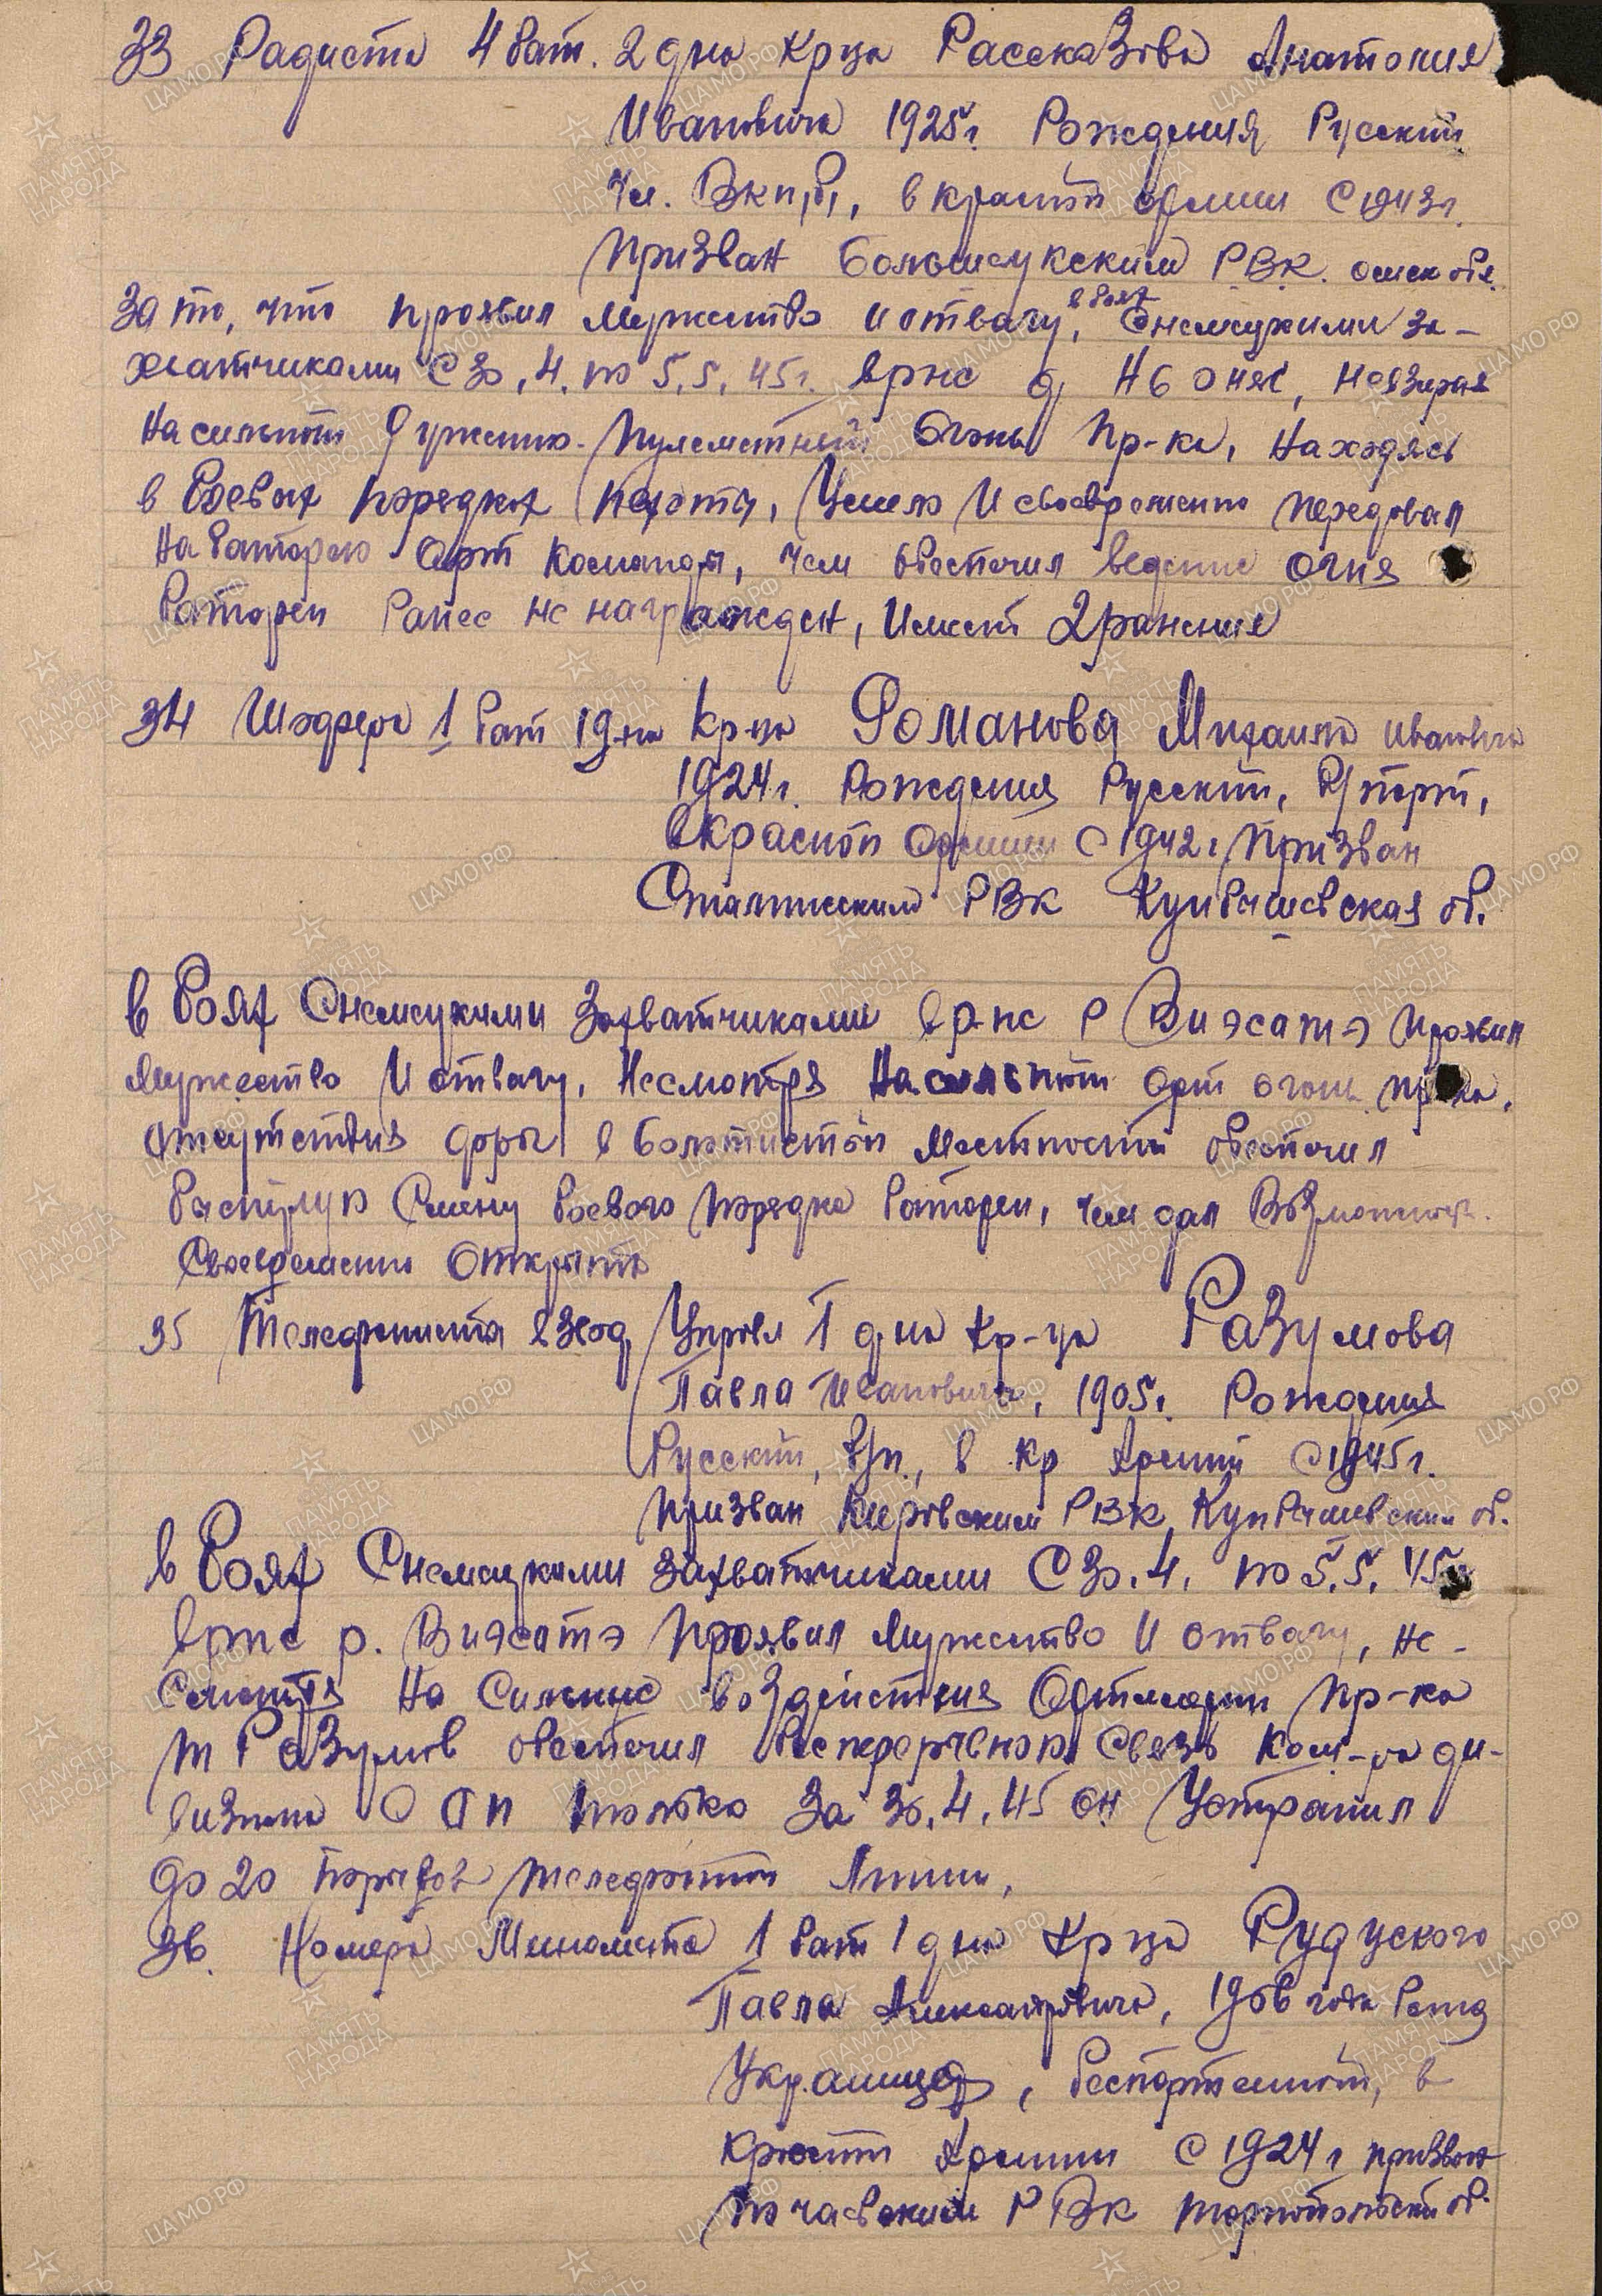 33 Радиста 4 бат. 2 дна кр-ца Рассказова Анатолия
Ивановича 1925г. Рождения Русский
чл. ВКП(б), в красной армии с 1943г.
призван РВК. омск обл.
За то, что проявил мужество и отвагу, в боях с немецкими за-
хватчиками с 30.4. по 5.5.45г. в р-не невзирая
на сильный ружейно-пулеметный огонь пр-ка, находясь
в боевых порядках пехоты, умело и своевременно передавал
на батарею арт команды, чем обеспечил ведение огня
батареи Ранее не награжден, имеет 2 ранения
34 Шофера 1 бат 1 д-на кр-ца Романова Михаила Ивановича
1924г. Рождения Русский, б/парт,
в красной армии с 1942г призван
Сталинским РВК Куйбышевская об.
в боях с немецкими захватчиками в р-не р Виэсатэ проявил
мужество и отвагу, несмотря на сильный арт огонь пр-ка,
отсутствия дорог в болотистой местности обеспечил
быструю смену боевого порядка батареи, чем дал возможность
своевременно открыть
35 Телефониста взвод Управл 1 д-на кр-ца Разумова
Павла Ивановича, 1905г. Рождения
Русский, б/п., в кр армии с 1945г.
призван Кировским РВК, Куйбышевский об.
в боях с немецкими захватчиками с 30.4. по 5.5.45г
в р-не р. Виэсатэ проявил мужество и отвагу, не-
смотря на сильные воздействия артиллерии пр-ка
т Разумов обеспечил бесперебойную связь ком-ра ди-
визиона с ОП только за 30.4.45 он устранил
до 20 порывов телефонной линии,
36. Номера миномета 1 бат 1 дна кр-ца Рудуского
Павла Александровича, 1906 года рожд
Украинца, беспартийный, в
красной армии с 1924г призван
Почаевским РВК Тарнопольский об.